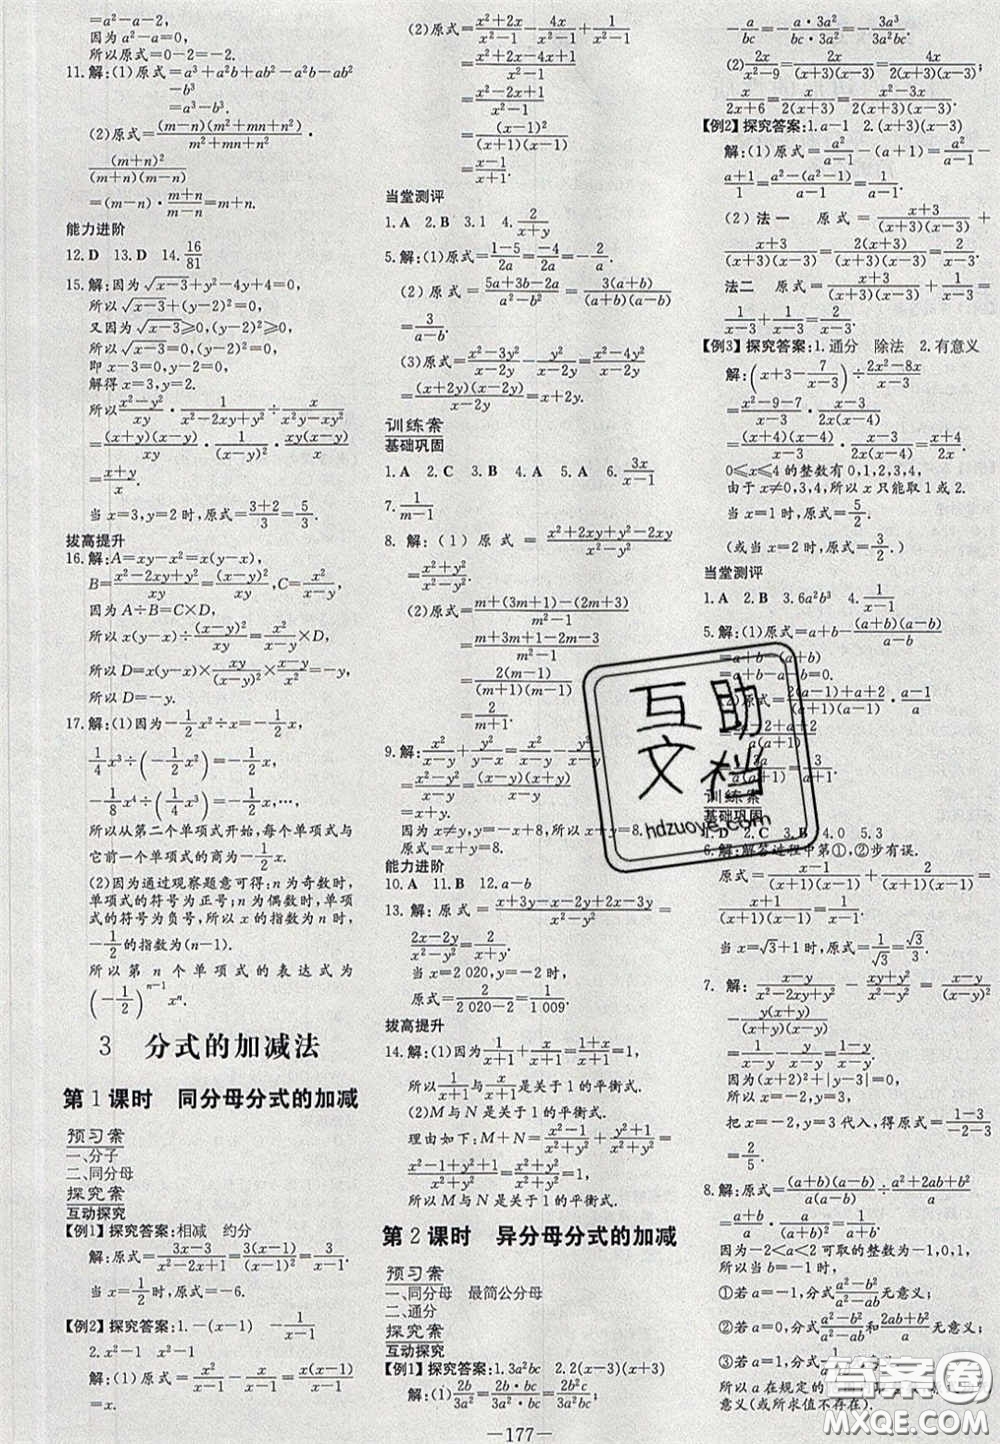 =a²-a-2,
因为a²-a=0,
所以原式=0-2=-2.
11.解:(1)原式=a³+a²b+ab²-a²b-ab²
-b³
=a³-b³.
(2)原式=(m-n)(m²+mn+n²)/(m²+mn+n²)·
(m+n)²/((m+n)(m-n))
=(m-n)·(m+n)/(m-n)=m+n.
能力进阶
12.D 13.D 14.16/81
15.解:因为√(x-3)+y²-4y+4=0,
所以√(x-3)+(y-2)²=0,
又因为√(x-3)≥0,(y-2)²≥0,
所以√(x-3)=0,(y-2)²=0,
即x-3=0,y-2=0,
解得x=3,y=2.
所以(x²-y²)/xy·1/(x²-2xy+y²)÷x/(x²y-xy²)
=(x+y)(x-y)/xy·1/(x-y)²·xy(x-y)/x
=(x+y)/x.
当x=3,y=2时,原式=(3+2)/3=5/3.
拔高提升
16.解:A=xy-x²=x(y-x),
B=(x²-2xy+y²)/xy=(x-y)²/xy,C=x²/(x-y),
因为A÷B=C×D,
所以x(y-x)÷(x-y)²/xy=x²/(x-y)×D,
所以D=x(y-x)×xy/(x-y)²×(x-y)/x²,
所以D=-y.
17.解:(1)因为-1/2x²÷x=-1/2x,
1/4x³÷(-1/2x²)=-1/2x,
-1/8x⁴÷(1/4x³)=-1/2x,…,
所以从第二个单项式开始,每个单项式与
它前一个单项式的商为-1/2x.
(2)因为通过观察题意可得:n为奇数时,
单项式的符号为正号;n为偶数时,单项
式的符号为负号,所以x的指数为n时,
-1/2的指数为(n-1).
所以第n个单项式的表达式为
(-1/2)ⁿ⁻¹xⁿ.
3 分式的加减法
第1课时 同分母分式的加减
预习案
一、分子
二、同分母
探究案
互动探究
【例1】探究答案:相减 约分
解:原式=(3x-3)/(x²-2x)=3(x-1)/x(x-1)=3/x.
当x=1/2时,原式=-6.
【例2】探究答案:1.-(x-1) -1/(x-1)
2.x²-1
解:(1)原式=x²/(x-1)-x/(x-1)=x(x-1)/(x-1)
=x.
(2)原式=(x²+2x)/(x²-1)-4x/(x²-1)+1/(x²-1)
=(x²+2x-4x+1)/(x²-1)
=(x²-2x+1)/(x²-1)
=(x-1)²/((x+1)(x-1))
=(x-1)/(x+1).
当堂测评
1.A 2.B 3.1 4.2/(x+y)
5.解:(1)原式=(1-5)/2a=-4/2a=-2/a.
(2)原式=(5a+3b-2a)/(a²-b²)=3(a+b)/((a+b)(a-b))
=3/(a-b).
(3)原式=(x²-3y²)/(x-2y)-y²/(x-2y)=(x²-4y²)/(x-2y)
=(x+2y)(x-2y)/(x-2y)=x+2y.
训练案
基础巩固
1.A 2.C 3.B 4.A 5.A 6.3x/(x-1)
7.1/(m-1)
8.解:(1)原式=(x²+2xy+y²-2xy)/(x²-y²)=
(x²+y²)/(x²-y²).
(2)原式=(m+(3m+1)-(2m+3))/(m²-1)
=(m+3m+1-2m-3)/(m²-1)
=2(m-1)/((m+1)(m-1))
=2/(m+1).
9.解:x²/(x-y)+y²/(y-x)=x²/(x-y)-y²/(x-y)=
(x²-y²)/(x-y)=(x-y)(x+y)/(x-y)
=x+y.
因为x≠y,y=-x+8,所以x+y=8.
原式=x+y=8.
能力进阶
10.A 11.B 12.a-b
13.解:原式=(x+3y-x-2y+2x-3y)/(x²-y²)=
(2x-2y)/(x²-y²)=2/(x+y).
当x=2 020,y=-2时,
原式=2/(2 020-2)=1/1 009.
拔高提升
14.解:(1)因为1/(x+1)+x/(x+1)=(1+x)/(x+1)=1,
所以1/(x+1)与x/(x+1)是关于1的平衡式.
(2)M与N是关于1的平衡式.
理由如下:M+N=(x²-1)/(x²+y²)+(y²+1)/(x²+y²)=
(x²-1+y²+1)/(x²+y²)=(x²+y²)/(x²+y²)=1,
所以M与N是关于1的平衡式.
第2课时 异分母分式的加减
预习案
一、同分母 最简公分母
二、通分
探究案
互动探究
【例1】探究答案:1.3a²bc 2.2(x-3)(x+3)
解:(1)2b/3a²=2b·bc/3a²·bc=2b²c/3a²bc;
-a/bc=-a·3a²/bc·3a²=-3a³/3a²bc.
(2)2x/(x²-9)=2x/((x+3)(x-3))=4x/(2(x+3)(x-3)),
x/(2x+6)=x/(2(x+3))=x(x-3)/(2(x+3)(x-3)).
【例2】探究答案:1.a-1 2.(x+3)(x-3)
解:(1)原式=a²/(a-1)-(a+1)=a²/(a-1)-
(a+1)/1=(a²-(a²-1))/(a-1)=1/(a-1).
(2)法一 原式=(x+3)/((x+3)(x-3))+
(x+3)/((x+3)(x-3))=2(x+3)/((x+3)(x-3))=2/(x-3).
法二 原式=(x+3)/((x+3)(x-3))+1/(x-3)=
1/(x-3)+1/(x-3)=2/(x-3).
【例3】探究答案:1.通分 除法 2.有意义
解:(x+3-7/(x-3))÷(2x²-8x)/(x-3)
=(x²-9-7)/(x-3)·(x-3)/(2x(x-4))
=(x+4)(x-4)/(x-3)·(x-3)/(2x(x-4))=(x+4)/2x.
0≤x≤4的整数有0,1,2,3,4,
由于x≠0,3,4,所以x只能取1或2.
当x=1时,原式=5/2.
(或当x=2时,原式=3/2.)
当堂测评
1.A 2.B 3.6a²b³ 4.1/(x-1)
5.解:(1)原式=a+b-(a+b)(a-b)/(a-b)
=a+b-(a+b)
=a+b-a-b=0.
(2)原式=(2(a-1)+(a+2))/((a+1)(a-1))·(a-1)/a
训练案
基础巩固
1.D 2.C 3.B 4.0 5.3
6.解:解答过程中第①,②步有误.
原式=(x-1)/((x+1)(x-1))+2/((x+1)(x-1))=
(x+1)/((x+1)(x-1))=1/(x-1).
当x=√3+1时,原式=1/√3=√3/3.
7.解:(x-y)/(x²-2xy+y²)-(xy+y²)/(x²-y²)=(x-y)/(x-y)²
-y(x+y)/((x+y)(x-y))
=1/(x-y)-y/(x-y)=(1-y)/(x-y).
因为|x+2|+(y-3)²=0,|x+2|≥0,(y-3)²≥0,
所以x=-2,y=3,
把x=-2,y=3代入,得原式=(1-3)/(-2-3)=
2/5.
8.解:原式=(a+b)(a-b)/a(a-b)÷(a²+2ab+b²)/a
=(a+b)/a·a/(a+b)²=1/(a+b),
因为-2<a<2可取的整数为-1,0,1,
所以当b=-1时,
①若a=-1,分式(a²-b²)/(a²-ab)无意义;
②若a=0,分式(a²-b²)/(a²-ab)和(2ab+b²)/a无意义;
③若a=1,分式1/(a+b)无意义.
意义(或所求值不存在).
—177—
互助文档
hdzuoye.com
答案圈
MXQE.COM